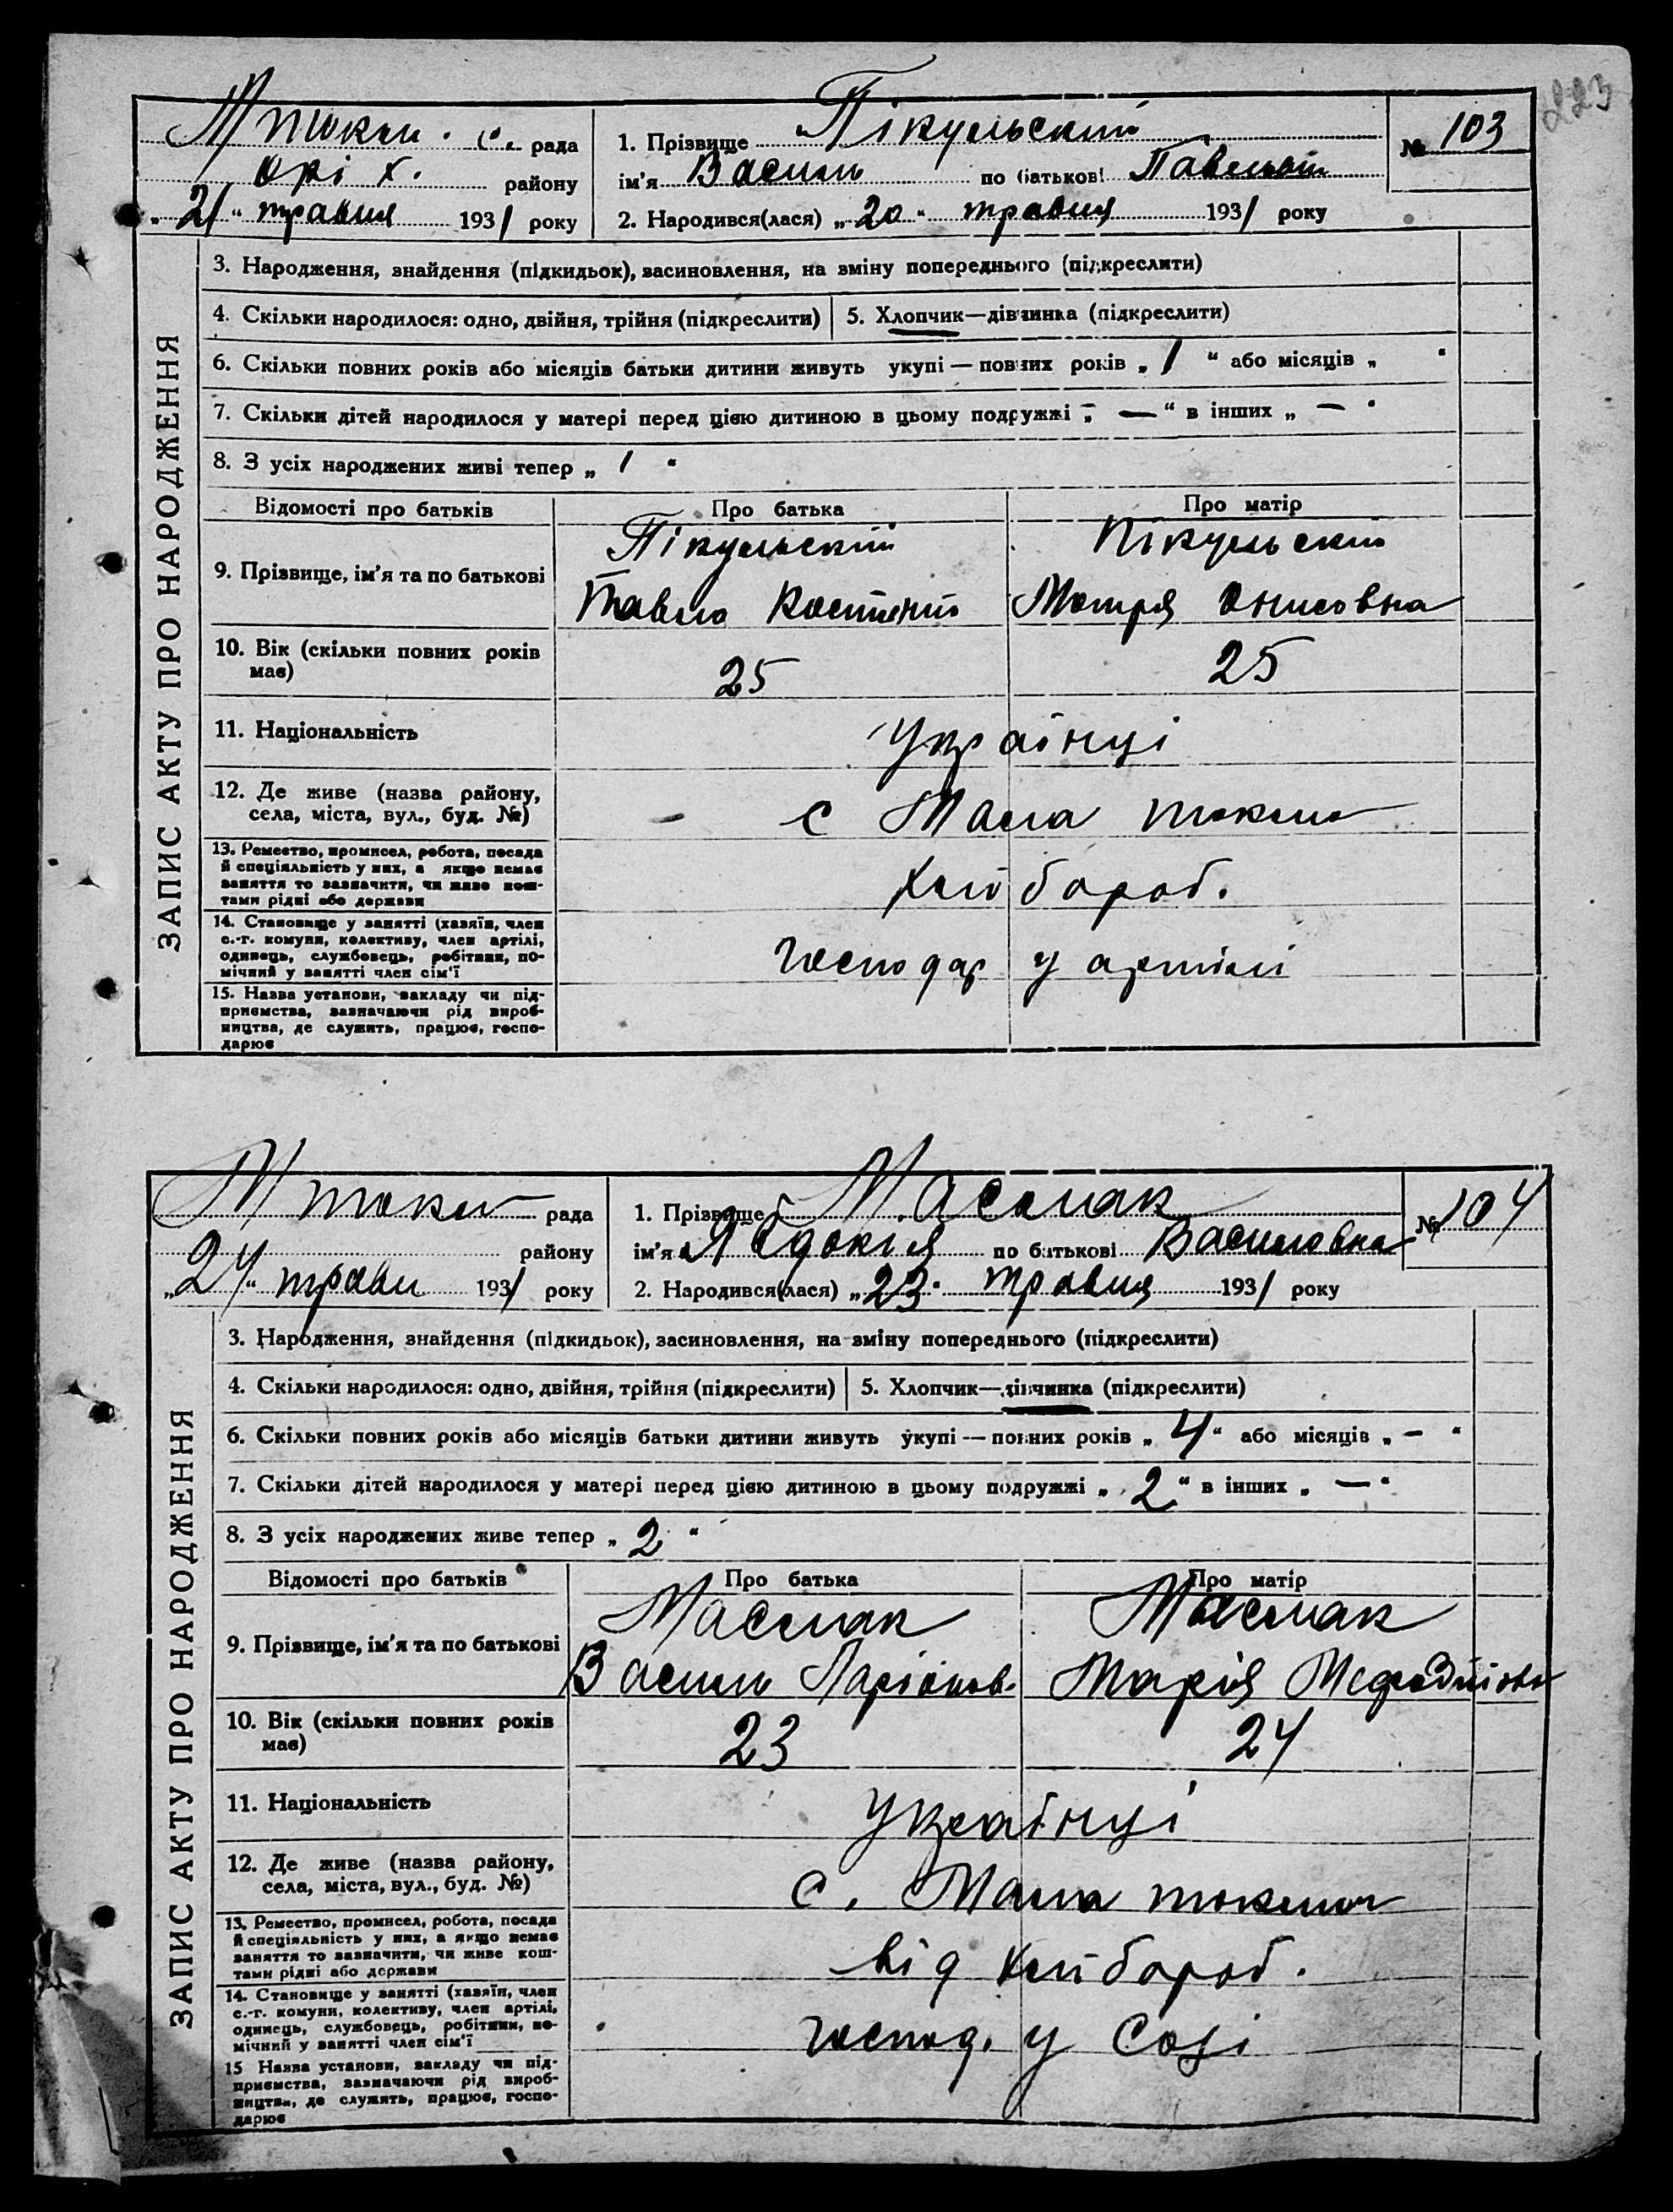 223
М токи . с. рада
орі х. району
„ 21 “ травня 1931 року
1. Прізвище Пікульський
№ 103
ім'я Василь по батькові Павлович
2. Народився(лася) „ 20 “ травня 1931 року
ЗАПИС АКТУ ПРО НАРОДЖЕННЯ
3. Народження, знайдення (підкидьок), засиновлення, на зміну попереднього (підкреслити)
4. Скільки народилося: одно, двійня, трійня (підкреслити)
5. Хлопчик—дівчинка (підкреслити)
6. Скільки повних років або місяців батьки дитини живуть укупі — повних років „ 1 “ або місяців „ “
7. Скільки дітей народилося у матері перед цією дитиною в цьому подружжі „ — “ в інших „ — “
8. З усіх народжених живі тепер „ 1 “
Відомості про батьків Про батька Про матір
9. Прізвище, ім'я та по батькові
Пікульский
Павло
Пікульский
Мотря Онисовна
10. Вік (скільки повних років має)
25 25
11. Національність
Українці
12. Де живе (назва району, села, міста, вул., буд. №)
с Мала токма
13. Ремество, промисел, робота, посада й спеціяльність у них, а якщо немає заняття то зазначити, чи живе коштами рідні або держави
хлібороб.
14. Становище у занятті (хазяїн, член с.-г. комуни, колективу, член артілі, одинець, службовець, робітник, помічний у занятті член сім'ї
господар у артілі
15. Назва установи, закладу чи підприємства, зазначаючи рід виробництва, де служить, працює, господарює
М токм рада
району
„ 24 “ травн 1931 року
1. Прізвище Маслак
№ 104
ім'я Явдокія по батькові Василовна
2. Народився(лася) „ 23 “ травня 1931 року
ЗАПИС АКТУ ПРО НАРОДЖЕННЯ
3. Народження, знайдення (підкидьок), засиновлення, на зміну попереднього (підкреслити)
4. Скільки народилося: одно, двійня, трійня (підкреслити)
5. Хлопчик—дівчинка (підкреслити)
6. Скільки повних років або місяців батьки дитини живуть укупі — повних років „ 4 “ або місяців „ — “
7. Скільки дітей народилося у матері перед цією дитиною в цьому подружжі „ 2 “ в інших „ — “
8. З усіх народжених живе тепер „ 2 “
Відомості про батьків Про батька Про матір
9. Прізвище, ім'я та по батькові
Маслак
Василь Ларіонов.
Маслак
Марія
10. Вік (скільки повних років має)
23 24
11. Національність
Українці
12. Де живе (назва району, села, міста, вул., буд. №)
с. Мала токма
13. Ремество, промисел, робота, посада й спеціяльність у них, а якщо немає заняття то зазначити, чи живе коштами рідні або держави
від хлібороб.
14. Становище у занятті (хазяїн, член с.-г. комуни, колективу, член артілі, одинець, службовець, робітник, помічний у занятті член сім'ї
господ. у Созі
15 Назва установи, закладу чи підприємства, зазначаючи рід виробництва, де служить, працює, господарює